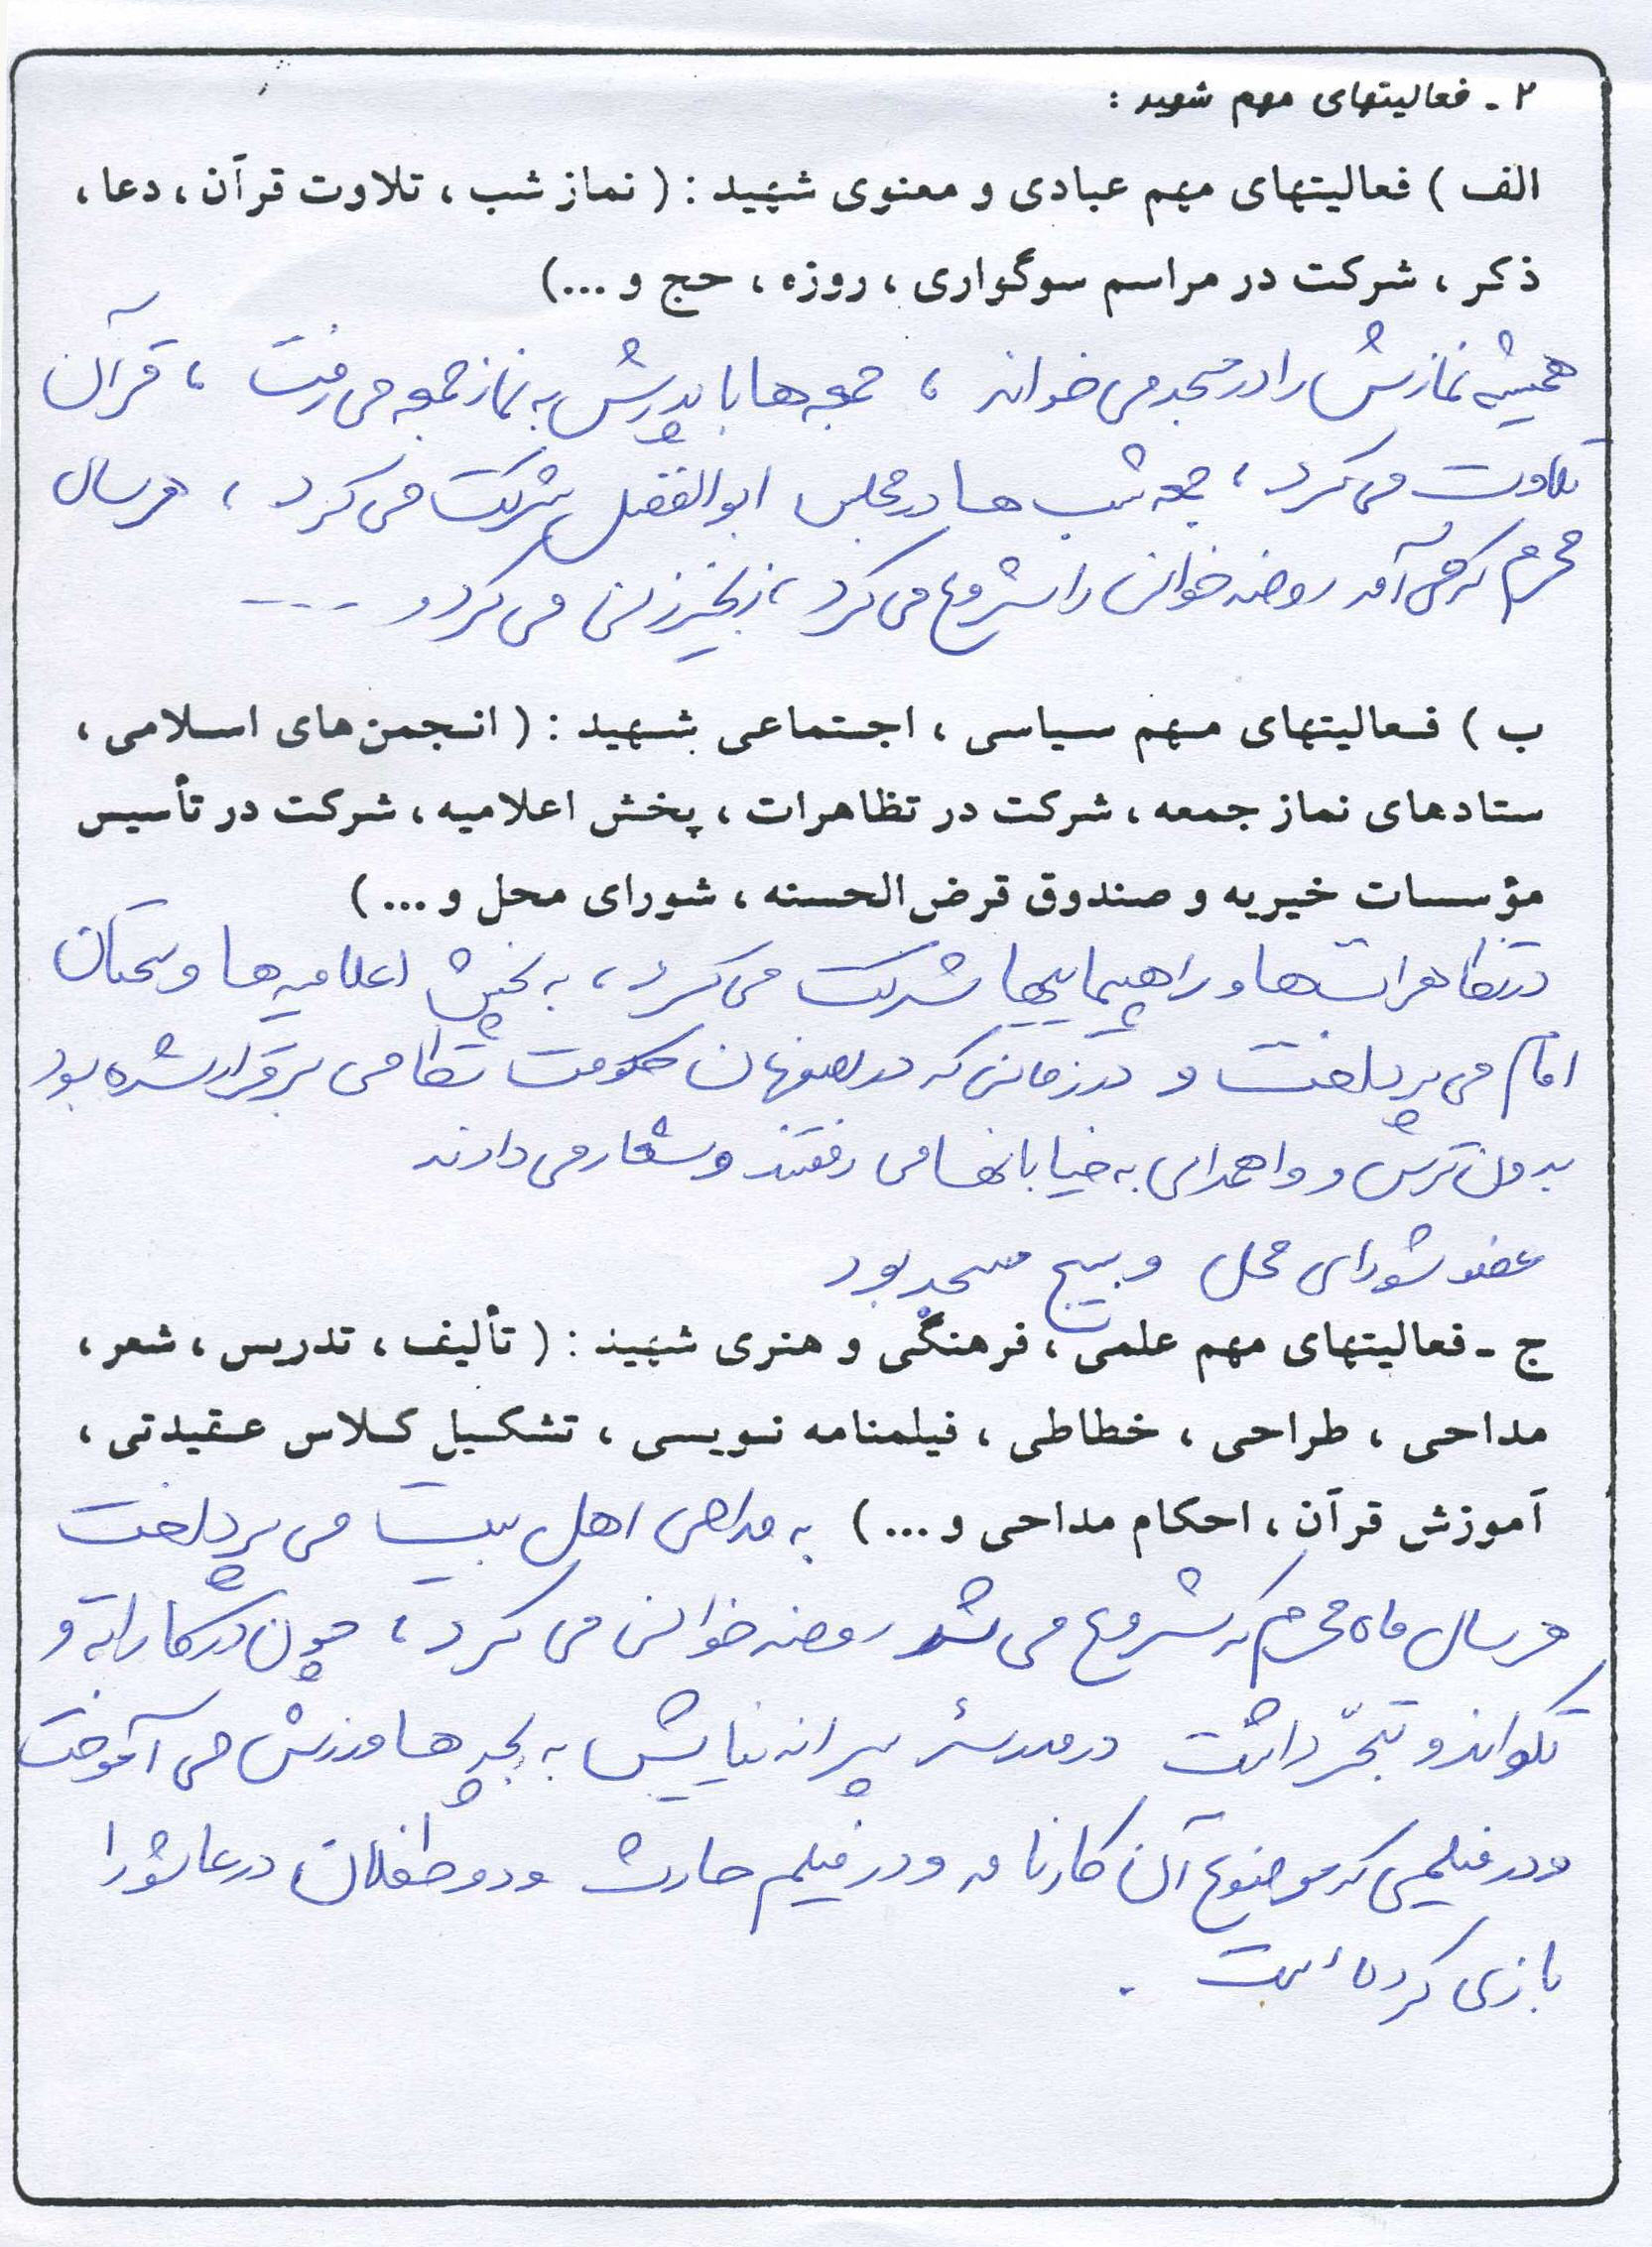 ۲ - فعالیتهای مهم شهید :
الف ) فعالیتهای مهم عبادی و معنوی شهید : ( نماز شب ، تلاوت قرآن ، دعا ،
ذکر ، شرکت در مراسم سوگواری ، روزه ، حج و ...)
همیشه نمازش را در مسجد می خواند ، جمعه ها با پدرش به نماز جمعه می رفت ، قرآن
تلاوت می کرد ، جمعه شب ها در مجلس ابوالفضل شرکت می کرد ، هر سال
محرم که می آمد روضه خوانی را شروع می کرد ، زنجیر زنی می کرد و ....
ب ) فعالیتهای مهم سیاسی ، اجتماعی شهید : ( انجمن های اسلامی ،
ستادهای نماز جمعه ، شرکت در تظاهرات ، پخش اعلامیه ، شرکت در تأسیس
مؤسسات خیریه و صندوق قرض الحسنه ، شورای محل و ... )
در تظاهرات ها و راهپیماییها شرکت می کرد ، به پخش اعلامیه ها و سخنان
امام می پرداخت و در زمانی که در اصفهان حکومت نظامی برقرار شده بود
بدون ترس و واهمه ای به خیابانها می رفتند و شعار می دادند
عضو شورای محل و بسیج مسجد بود
ج - فعالیتهای مهم علمی ، فرهنگی و هنری شهید : ( تألیف ، تدریس ، شعر ،
مداحی ، طراحی ، خطاطی ، فیلمنامه نویسی ، تشکیل کلاس عقیدتی ،
آموزش قرآن ، احکام مداحی و ... ) به مداحی اهل بیت می پرداخت
هر سال ماه محرم که شروع می شد روضه خوانی می کرد ، چون در کاراته و
تکواندو تبحّر داشت در مدرسهٔ پسرانه نیایش به بچه ها ورزش می آموخت
و در فیلمی که موضوع آن کارنامه و در فیلم حارث و دو طفلان در عاشورا
بازی کرده است .